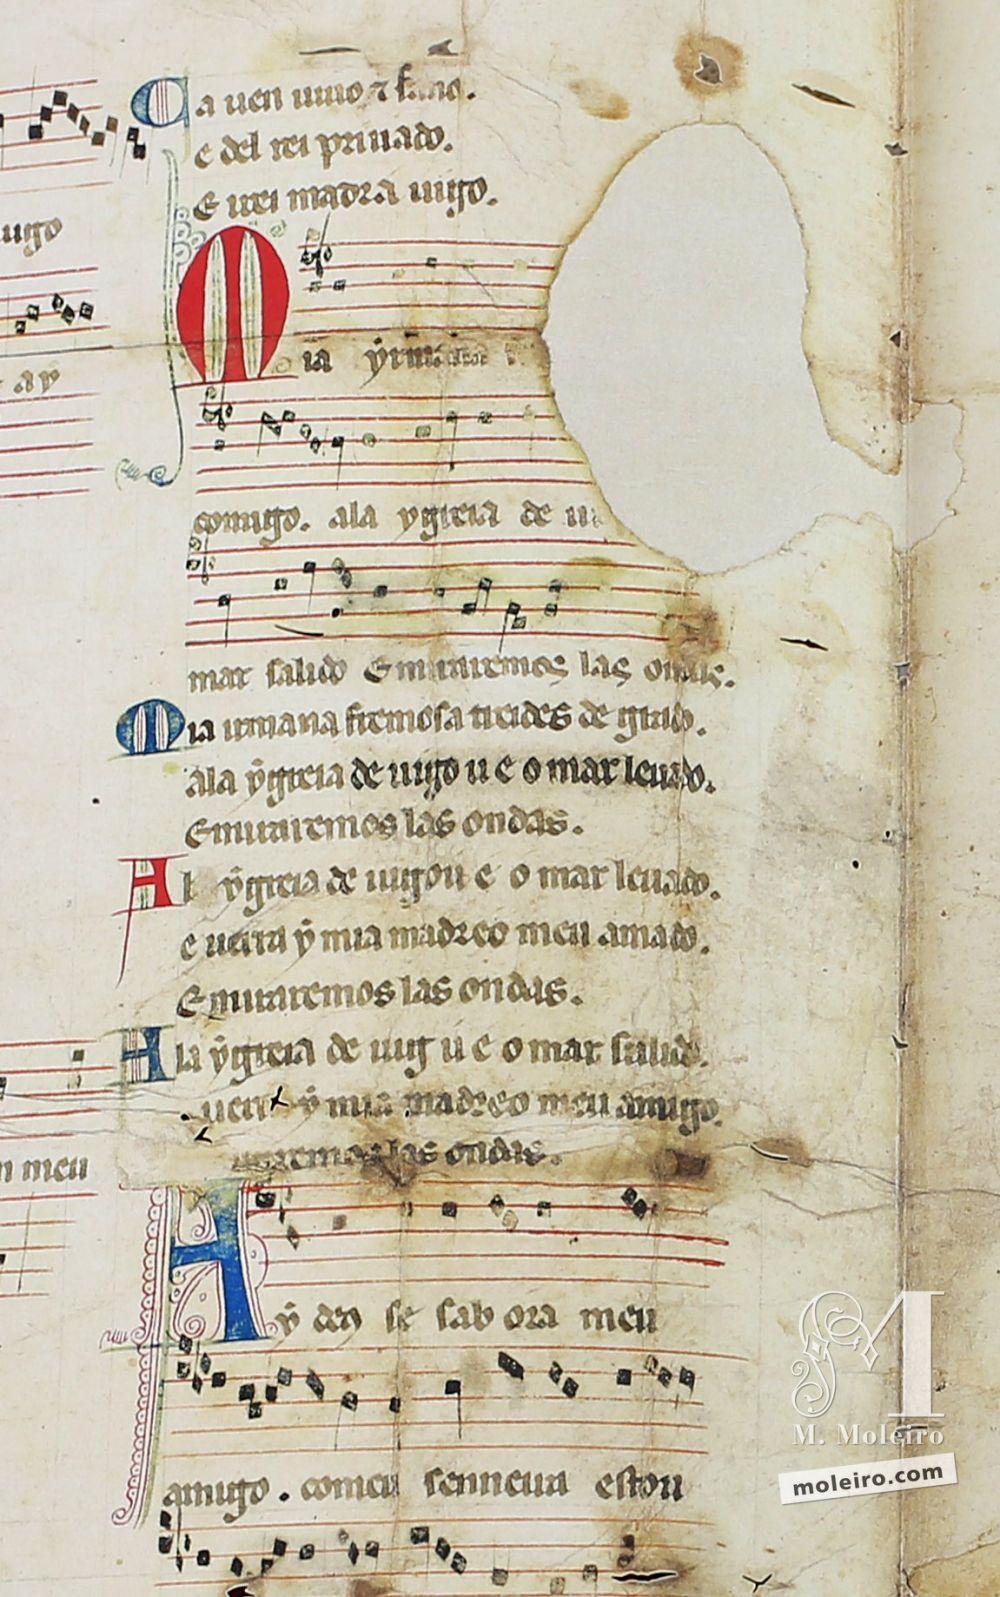 Ca uen uiuo ⁊ sano.
e del rei priuado.
E irei madra uigo.
uigo
Mia yrmana
ay
comigo. ala ygreia de ui
mar salido E miraremos las ondas.
Mia irmana fremosa treides de grado.
ala ygreia de uigo u e o mar leuado.
E miraremos las ondas.
A la ygreia de uigo u e o mar leuado.
e uerra y mia madre o meu amado.
E miraremos las ondas.
A la ygreia de uig u e o mar salido.
uerra y mia madre o meu amigo.
miraremos las ondas.
n meu
Ay deus se sab ora meu
amigo. com eu senneira estou
M. Moleiro
moleiro.com